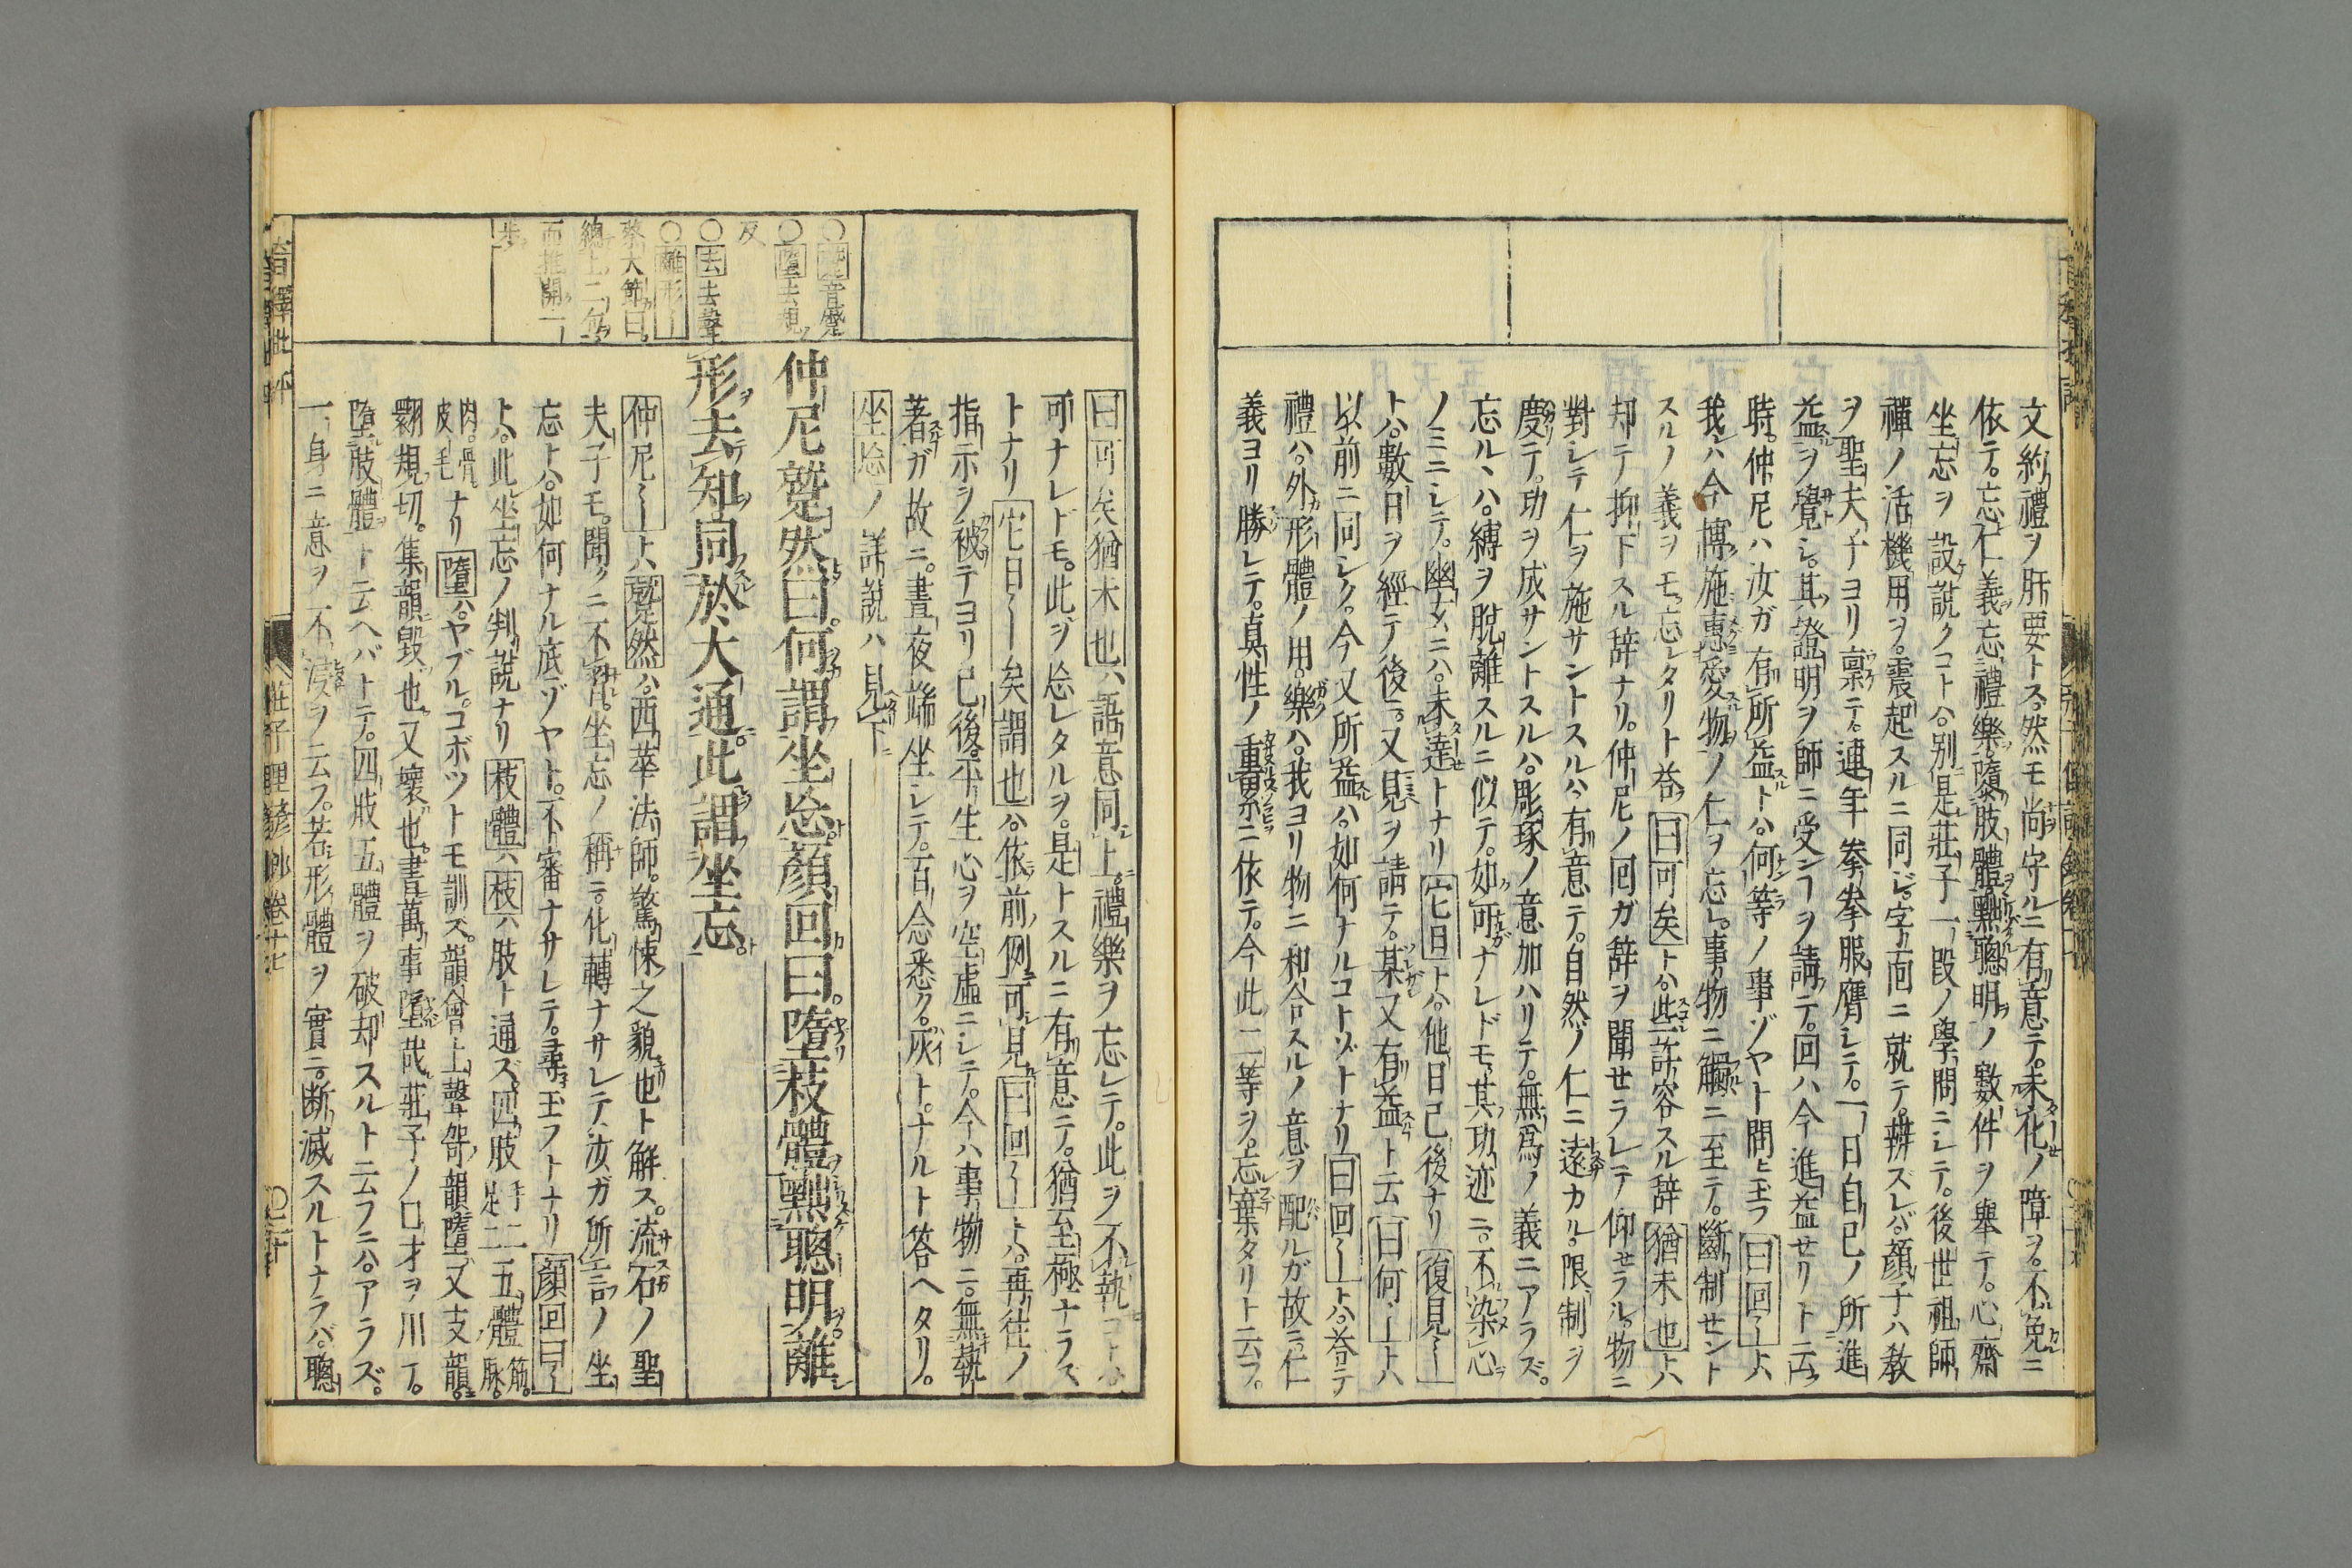 文約禮ヲ肝要トス。然モ尚守ルニ有意テ。未化ノ障ヲ。不免ニ
依テ。忘仁義忘禮樂墮肢體黜聰明ノ數件ヲ舉テ。心齋
坐忘ヲ設說クコトハ。別是莊子一段ノ學問ニシテ。後世祖師
禪ノ活機用ヲ。震起スルニ同ジ。字面ニ就テ。辨ズレバ。顏子ハ教
ヲ聖夫子ヨリ稟テ。連年拳拳服膺シテ。一日自己ノ所進
益ヲ覺シ。其證明ヲ師ニ受ンヿヲ請テ。回ハ今進益セリト云
時。仲尼ハ汝ガ有所益トハ。何等ノ事ゾヤト問玉フ曰回〻トハ
我レハ今博施惠愛物ノ仁ヲ忘レ。事物ニ觸ニ至テ。斷制セント
スルノ義ヲモ。忘レタリト荅曰可矣トハ。些許容スル辞猶未也トハ
却テ抑下スル辞ナリ。仲尼ノ回ガ辞ヲ聞せラレテ仰せラル。物ニ
對シテ仁ヲ施サントスルハ。有意テ。自然ノ仁ニ遠カル。限制ヲ
度テ。功ヲ成サントスルハ。彫琢ノ意加ハリテ。無爲ノ義ニアラズ。
忘ルヽハ。縛ヲ脫離スルニ似テ。如可ナレドモ。其功迹ニ。不染心
ノミニシテ。幽玄ニハ。未達トナリ它日トハ。他日已後ナリ復見〻
トハ。數日ヲ經テ後ニ。又見ヲ請テ。某又有益ト云曰何〻トハ
以前ニ同シク。今又所益ハ。如何ナルコトゾトナリ曰回〻トハ。荅テ
禮ハ。外形體ノ用。樂ハ。我ヨリ物ニ和合スルノ意ヲ配ルガ故ニ。仁
義ヨリ勝レテ。眞性ノ重累ニ依テ。今此二等ヲ。忘棄タリト云フ。
曰可矣猶未也ハ語意同上。禮樂ヲ忘レテ。此ヲ不執コトハ
可ナレドモ。此ヲ忩レタルヲ。是トスルニ有意テ。猶至極ナラズ
トナリ它日〻矣謂也ハ。依前例可見曰回〻トハ。再往ノ
指示ヲ被テヨリ已後。平生心ヲ空虛ニシテ。今ハ事物ニ。無執
著ガ故ニ。晝夜端坐シテ。百念悉ク。灰ト。ナルト答ヘタリ。
坐忩ノ詳說ハ見下
仲尼蹵然曰。何謂坐忩。顏回曰。墮枝體黜聰明。離
形去知。同於大通。此謂坐忘
仲尼〻トハ蹵然ハ。西華法師。驚悚之貌也ト解ス。流石ノ聖
夫子モ。聞クニ不習。坐忘ノ稱ニ。化轉ナサレテ。汝ガ所言ノ坐
忘トハ。如何ナル底ゾヤト。不審ナサレテ。尋玉フトナリ顏回曰〻
トハ。此坐忘ノ判說ナリ枝體ハ枝ハ肢ト通ズ。四肢手二足二五體筋。脉。
肉。骨。皮毛ナリ墮ハ。ヤブル。コボツトモ訓ズ。韻會上聲哿韻墮。又支韻。
翾規切。集韻毀也。又壞也。書萬事墮哉。莊子ノ口才ヲ川丁。
墮肢體ト云ヘバトテ。四肢五體ヲ破却スルト云フニハ。アラズ。
一身ニ意ヲ不渉ヲ云フ。若形體ヲ實ニ。断滅スルトナラバ。聰
音鼀
○墮去規
反
○去去聲
○離形〻
蔡大節曰。
總上二句
而推開一
步
音釋批評
莊子俚諺鈔卷十七
○二十